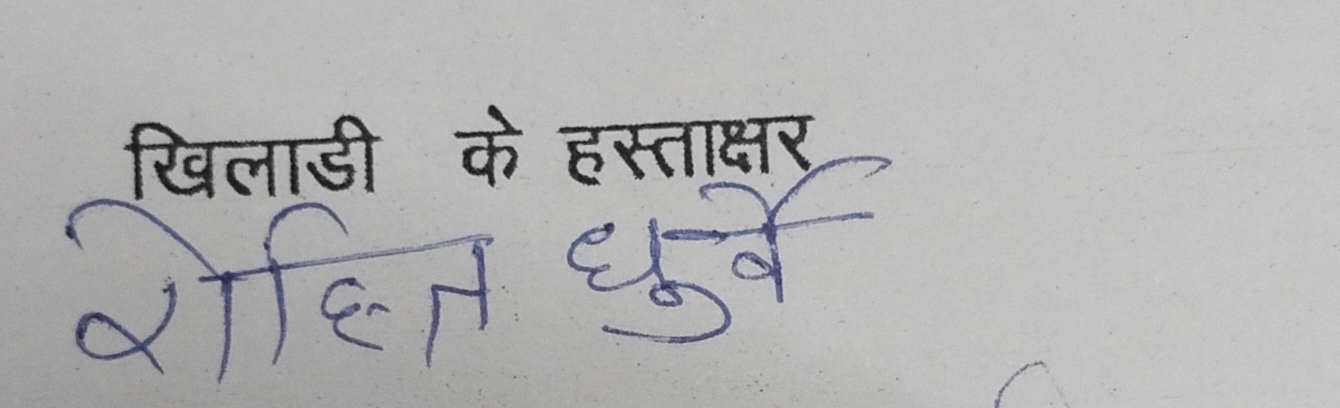 खिलाडी के हस्ताक्षर
रोहित धुर्वे